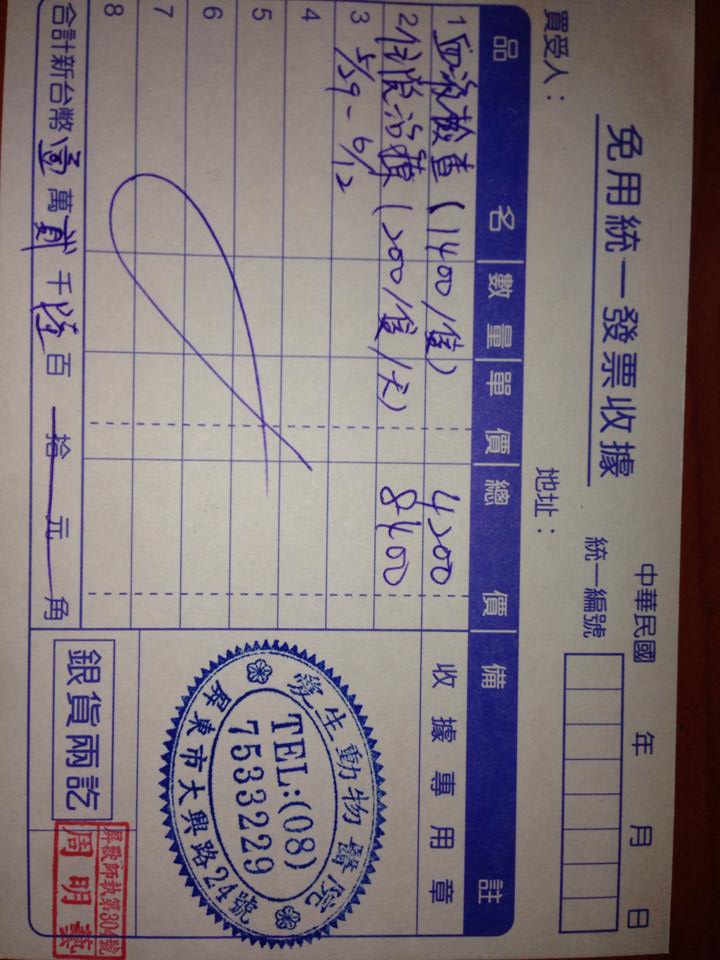 免用統一發票收據
中華民國 年 月 日
統一編號
買受人：
地址：
品名 數量 單價 總價 備註
1 血液檢查 (1400/隻) 4200
2 住院治療 (200/隻/天) 8400
3 5/29-6/12
4
5
6
7
8
合計新台幣 壹 萬 貳 千 陸 百 拾 元 角
收據專用章
愛生動物醫院
TEL:(08)
7533229
屏東市大興路24號
銀貨兩訖
周明